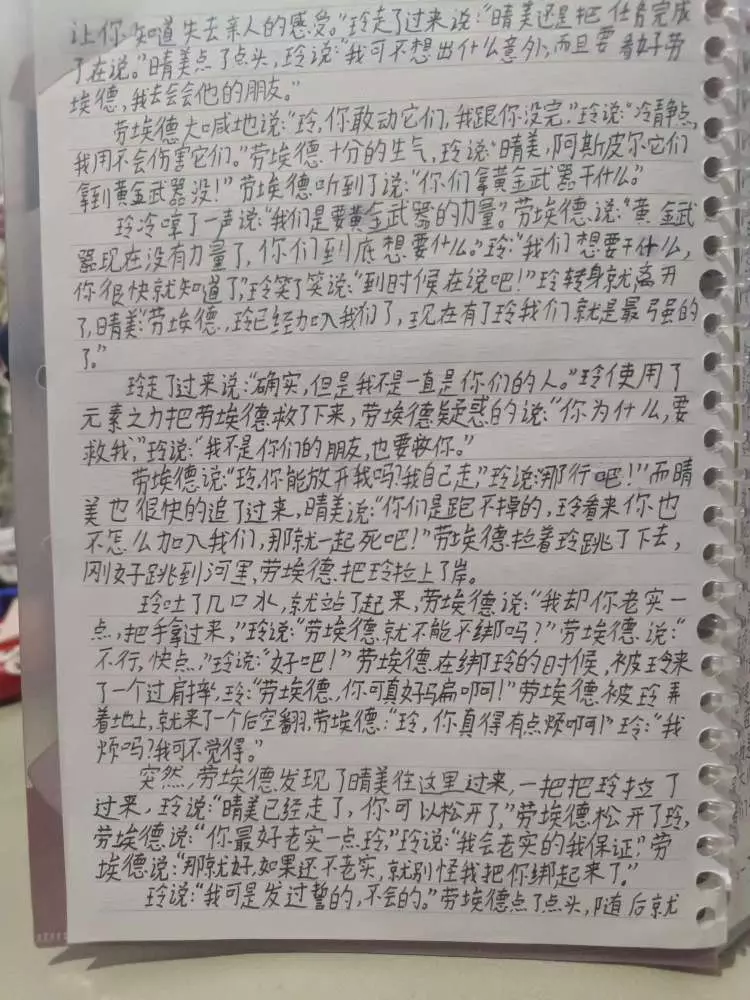 让你知道失去亲人的感受。”玲走了过来说：“晴美还是把任务完成
了在说。”晴美点了点头，玲说：“我可不想出什么意外，而且要看好劳
埃德，我去会会他的朋友。”
劳埃德大喊地说：“玲，你敢动它们，我跟你没完，”玲说：“冷静点，
我用不会伤害它们。”劳埃德十分的生气，玲说：“晴美，阿斯皮尔它们
拿到黄金武器没！”劳埃德听到了说：“你们拿黄金武器干什么。”
玲冷哼了一声说：“我们是要黄金武器的力量”。劳埃德说：“黄金武
器现在没有力量了，你们到底想要什么。”玲：“我们想要干什么，
你很快就知道了，”玲笑了笑说：“到时候在说吧！”玲转身就离开
了，晴美：“劳埃德，玲已经加入我们了，现在有了玲我们就是最强的
了。”
玲走了过来说：“确实，但是我不是一直是你们的人。”玲使用了
元素之力把劳埃德救了下来，劳埃德疑惑的说：“你为什么，要
救我，”玲说：“我不是你们的朋友，也要救你。”
劳埃德说：“玲，你能放开我吗？我自己走，”玲说：“那行吧！”而晴
美也很快的追了过来，晴美说：“你们是跑不掉的，玲看来你也
不怎么加入我们，那就一起死吧！”劳埃德拉着玲跳了下去，
刚好跳到河里，劳埃德把玲拉上了岸。
玲吐了几口水，就站了起来，劳埃德说：“我却你老实一
点，把手拿过来，”玲说：“劳埃德就不能不绑吗？”劳埃德说：“
不行，快点，”玲说：“好吧！”劳埃德在绑玲的时候，被玲来
了一个过肩摔，玲：“劳埃德，你可真好骗啊！”劳埃德被玲弄
着地上，就来了一个后空翻，劳埃德：“玲，你真得有点烦啊！”玲：“我
烦吗？我可不觉得。”
突然，劳埃德发现了晴美往这里过来，一把把玲拉了
过来，玲说：“晴美已经走了，你可以松开了，”劳埃德松开了玲，
劳埃德说：“你最好老实一点玲，”玲说：“我会老实的我保证，”劳
埃德说：“那就好，如果还不老实，就别怪我把你绑起来了。”
玲说：“我可是发过誓的，不会的。”劳埃德点了点头，随后就